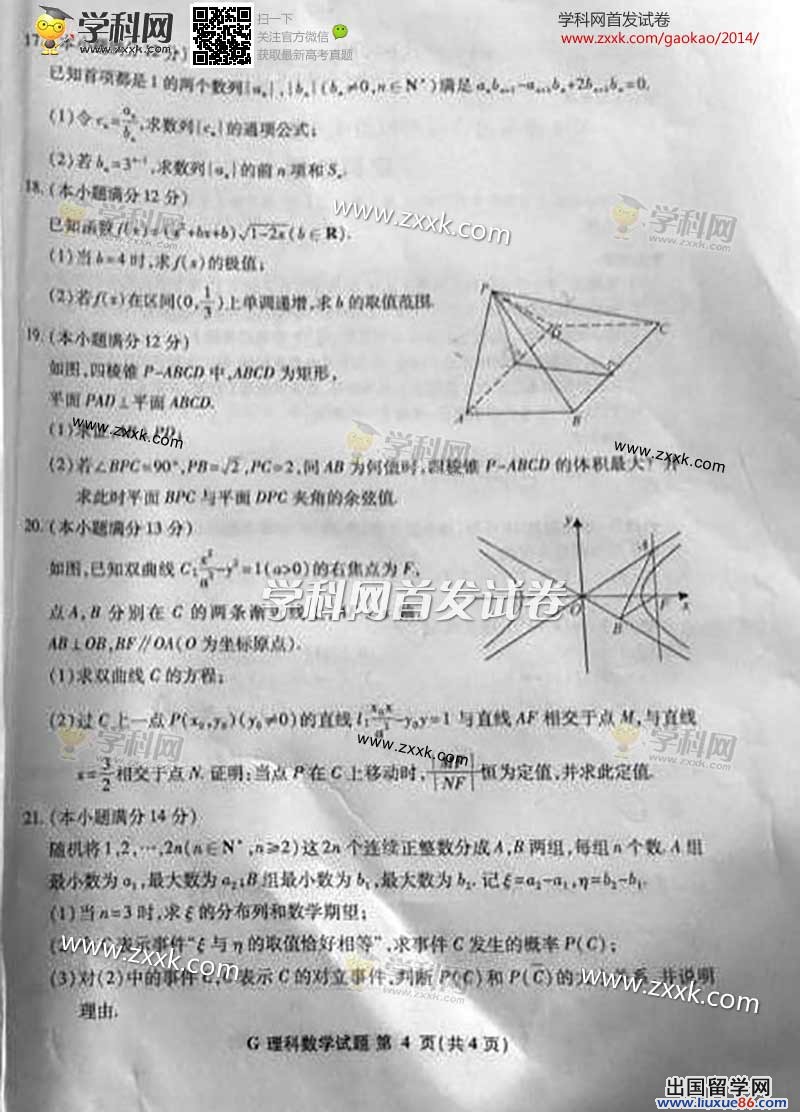 学科网
www.zxxk.com
扫一下
关注官方微信
获取最新高考真题
学科网首发试卷
www.zxxk.com/gaokao/2014/
17.
已知首项都是1的两个数列{aₙ},{bₙ}(bₙ≠0,n∈N*)满足 aₙbₙ₊₁-aₙ₊₁bₙ+2bₙ₊₁bₙ=0.
(1)令cₙ=aₙ/bₙ,求数列{cₙ}的通项公式;
(2)若bₙ=3ⁿ⁻¹,求数列{aₙ}的前n项和Sₙ.
18.(本小题满分12分)
已知函数f(x)=(x²+bx+b)√1-2x(b∈R).
(1)当b=4时,求f(x)的极值;
(2)若f(x)在区间(0,1/3)上单调递增,求b的取值范围.
19.(本小题满分12分)
如图,四棱锥P-ABCD中,ABCD为矩形,
平面PAD⊥平面ABCD.
(1)求证:
PD;
(2)若∠BPC=90°,PB=√2,PC=2,问AB为何值时,四棱锥P-ABCD的体积最大?并
求此时平面BPC与平面DPC夹角的余弦值.
P
C
A
B
20.(本小题满分13分)
如图,已知双曲线C:x²/a²-y²=1(a>0)的右焦点为F,
点A,B分别在C的两条渐
AB⊥OB,BF∥OA(O为坐标原点).
(1)求双曲线C的方程;
(2)过C上一点P(x₀,y₀)(y₀≠0)的直线l:x₀x/a²-y₀y=1与直线AF相交于点M,与直线
x=3/2相交于点N.证明:当点P在C上移动时,|MF|/|NF|恒为定值,并求此定值.
y
A
O
F
x
B
21.(本小题满分14分)
随机将1,2,…,2n(n∈N*,n≥2)这2n个连续正整数分成A,B两组,每组n个数.A组
最小数为a₁,最大数为a₂;B组最小数为b₁,最大数为b₂.记ξ=a₂-a₁,η=b₂-b₁.
(1)当n=3时,求ξ的分布列和数学期望;
表示事件“ξ与η的取值恰好相等”,求事件C发生的概率P(C);
(3)对(2)中的事件C,C̄表示C的对立事件,判断P(C)和P(C̄)的
系,并说明
理由.
G 理科数学试题 第 4 页(共4页)
学科网
www.zxxk.com
www.zxxk.com
学科网
www.zxxk.com
www.zxxk.com
学科网
www.zxxk.com
www.zxxk.com
学科网首发试卷
学科网
www.zxxk.com
www.zxxk.com
学科网
www.zxxk.com
www.zxxk.com
学科网
www.zxxk.com
www.zxxk.com
出国留学网
www.liuxue86.com